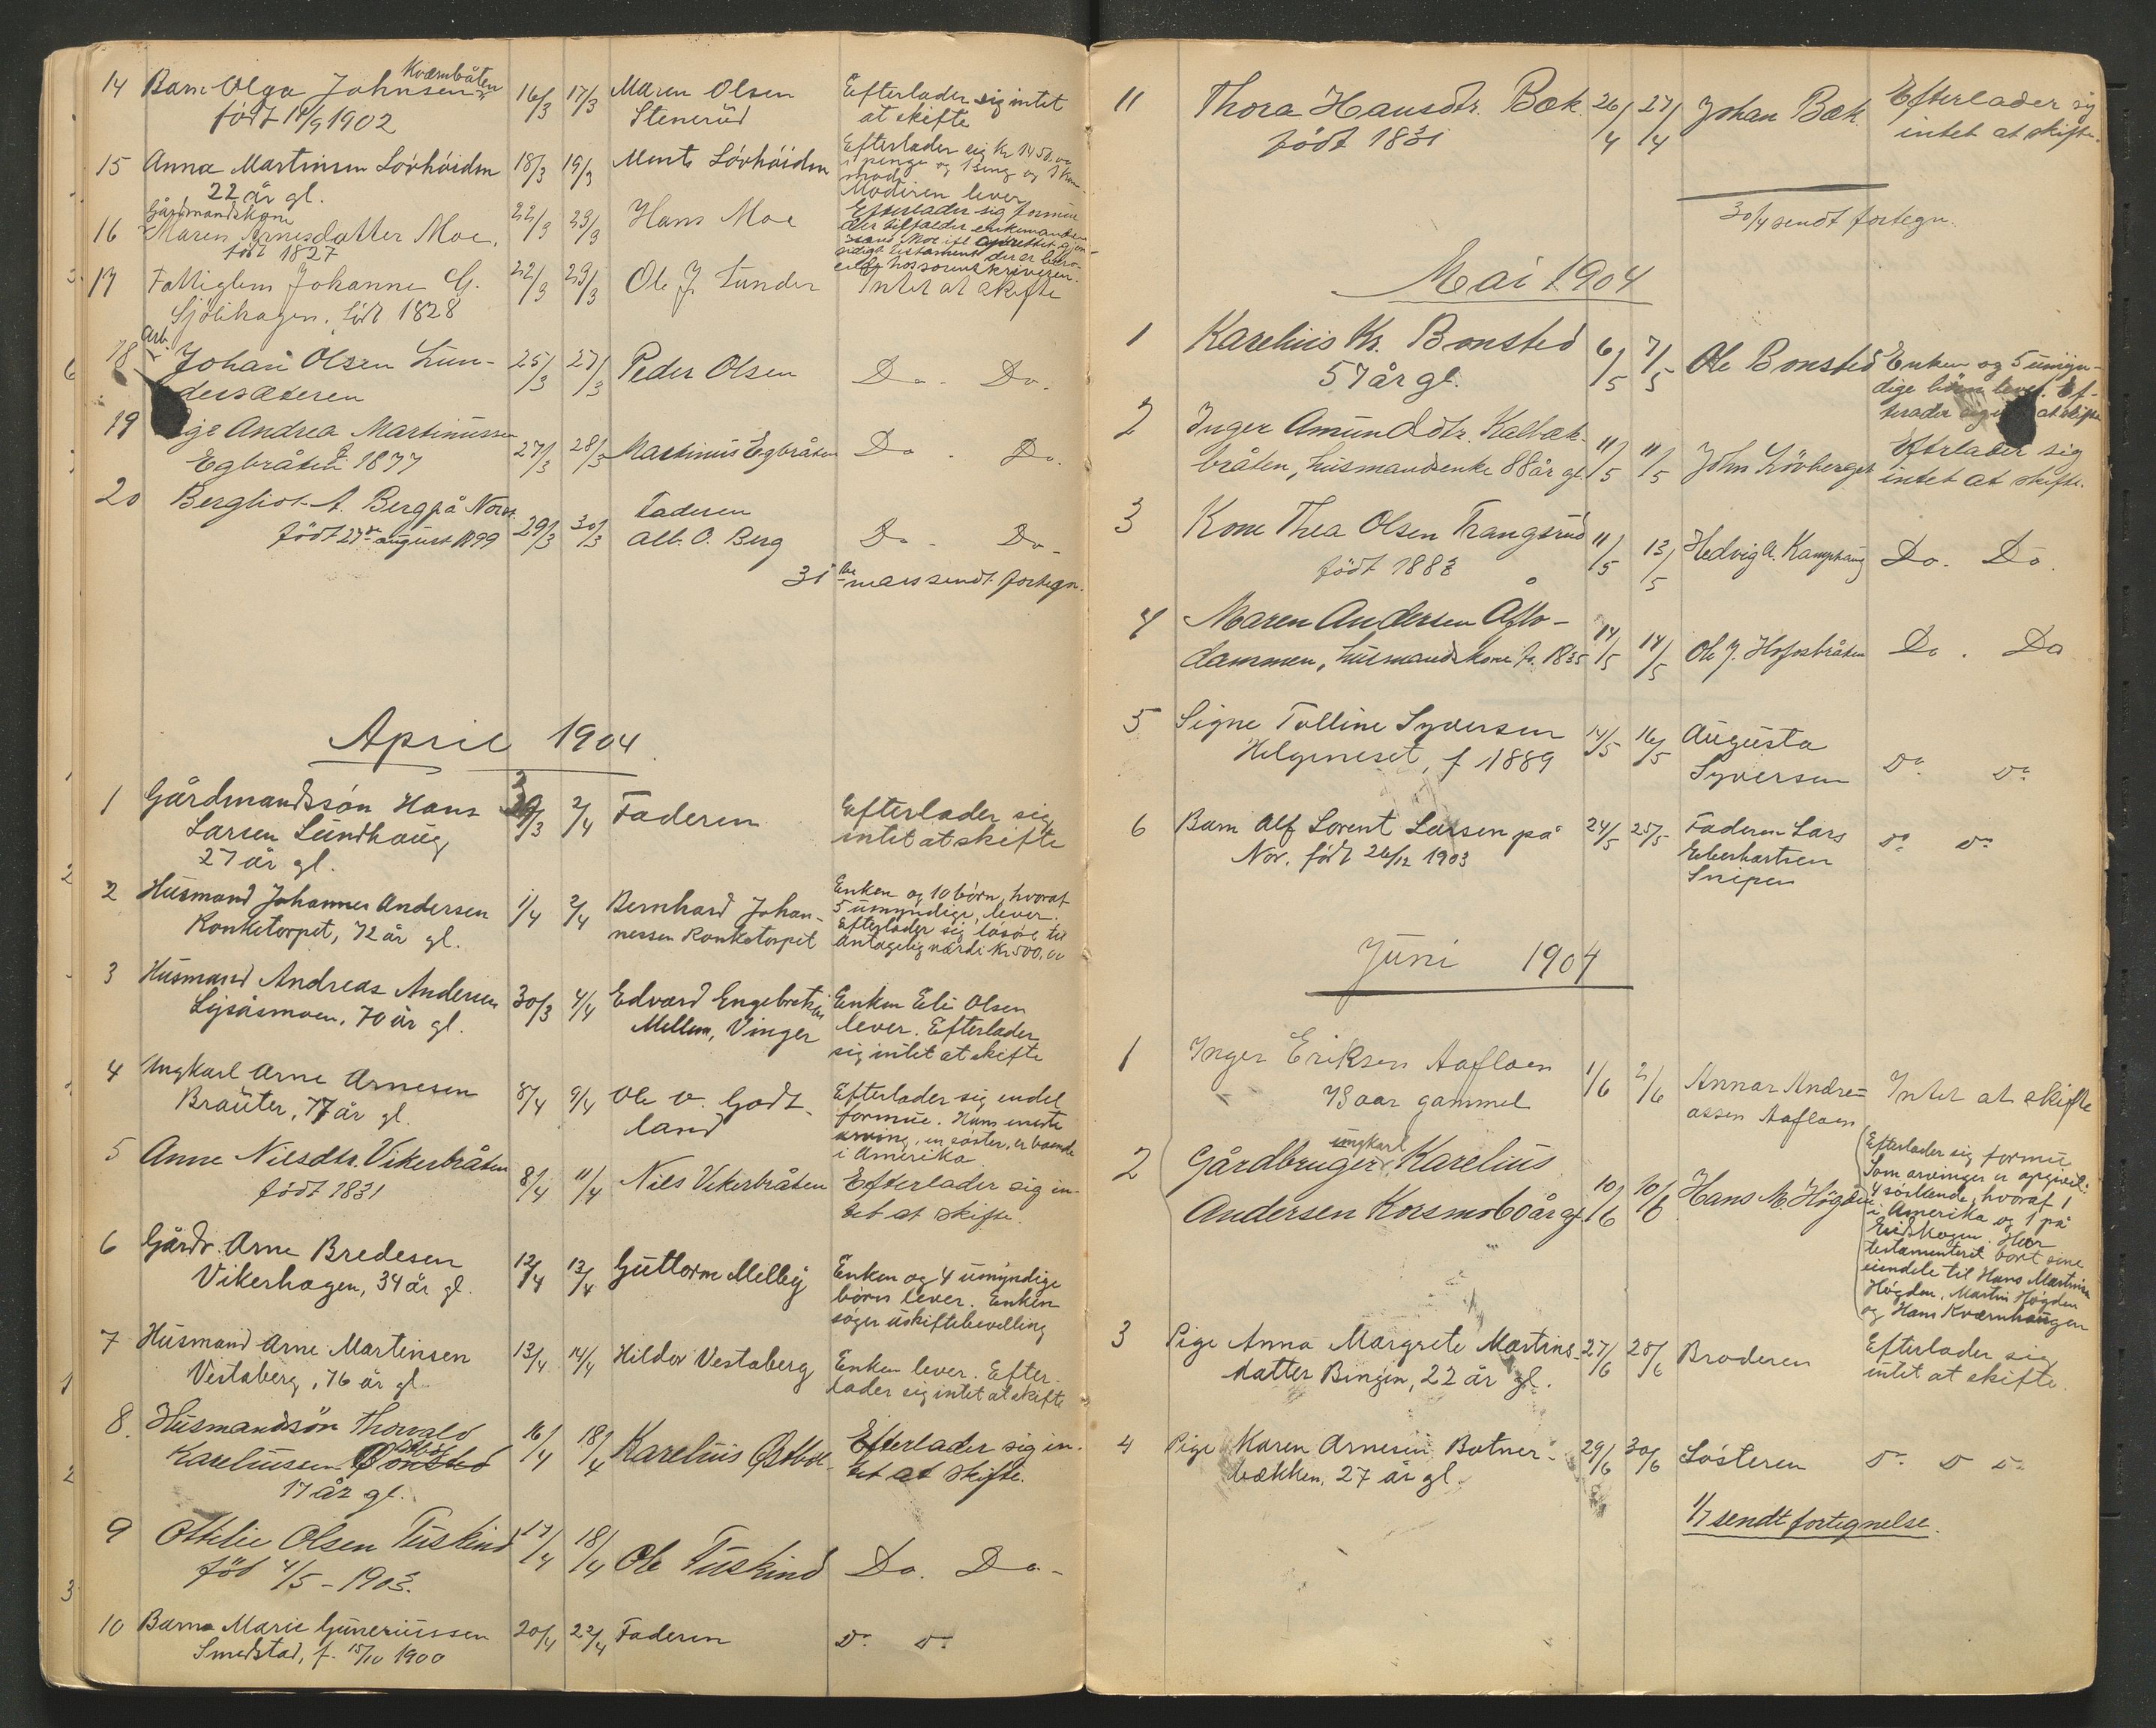 14 Barn Olga Johnsen Kværnbåten 16/3 17/3 Maren Olsen Efterlader sig intet
født 14/9 1902 Stenerud at skifte
15 Anna Martinsen Lövhöiden 18/3 19/3 Ments Lövhöiden Efterlader sig Kr 1450,00
22 år gl. i penge og 1 seng og 1 kom-
mode
Moderen lever
Gårdmandskone
16 Maren Arnesdatter Moe, 22/3 23/3 Hans Moe Efterlader sig formue
født 1827 der tilfalder enkemanden
Hans Moe ifl oprettet gjen-
sidigt testament der er bero-
ende hos sorenskriveren.
17 Fattiglem Johanne G. 22/3 23/3 Ole J. Lunder Intet at skifte
Sjölihagen. född 1828
Arb.
18 Johan Olsen Lun- 25/3 27/3 Peder Olsen Do. Do.
dersæteren
19 Pige Andrea Martinussen 27/3 28/3 Martinus Egbråten Do. Do.
Egbråten f. 1877
20 Bergliot A. Berg på Nor 29/3 30/3 Faderen Do. Do.
født 27de august 1899 Alb. O. Berg
31te mars sendt fortegn.
April 1904
1 Gårdmandssön Hans 30/3 2/4 Faderen Efterlader sig
Larsen Lundhaug, intet at skifte
27 år gl.
2 Husmand Johannes Andersen 1/4 2/4 Bernhard Johan- Enken og 10 börn, hvoraf
Ronketorpet, 72 år gl. nessen Ronketorpet 5 umyndige, lever.
Efterlader sig lösöre til
antagelig værdi Kr 500,00
3 Husmand Andreas Andersen 30/3 4/4 Edvard Engebretsen Enken Eli Olsen
Lysåsmoen, 70 år gl. Mellem, Vinger lever. Efterlader
sig intet at skifte
4 Ungkarl Arne Arnesen 8/4 9/4 Ole O. Godt- Efterlader sig endel
Bråuter, 77 år gl. land formue. Hans eneste
arving, en söster, er boende
i Amerika
5 Anne Nilsdtr. Vikerbråten 8/4 11/4 Nils Vikerbråten Efterlader sig in-
født 1831 tet at skifte.
6 Gårdr. Arne Bredesen 12/4 13/4 Guttorm Melby Enken og 4 umyndige
Vikerhagen, 34 år gl. börn lever. Enken
söger uskiftebevilling
7 Husmand Arne Martinsen 13/4 14/4 Hildor Vestaberg Enken lever. Efter-
Vestaberg, 76 år gl. lader sig intet at skifte
8. Husmandssön Thorvald 16/4 18/4 Karelius Østbol Efterlader sig in-
Kareliussen tet at skifte.
17 år gl.
9 Ottilie Olsen Tuskind 17/4 18/4 Ole Tuskind Do. Do.
föd 4/5 - 1903.
10 Barn Marie Guneriussen 20/4 22/4 Faderen Do. Do.
Smedstad, f. 15/10 1900
11 Thora Hansdtr. Bæk 26/4 27/4 Johan Bæk. Efterlader sig
född 1831 intet at skifte.
30/4 sendt fortegn.
Mai 1904
1 Karelius Kr. Bonsted 6/5 7/5 Ole Bonsted Enken og 5 umyn-
57 år gl. dige börn lever. Ef-
terlader sig intet at skifte
2 Inger Amundsdtr. Kalbæk- 11/5 11/5 John Lövberget Efterlader sig
bråten, husmandsenke 88 år gl. intet at skifte.
3 Kone Thea Olsen Trangsrud 11/5 13/5 Hedvig A. Kamphaug Do. Do.
född 1883
4 Maren Andersen Åflo- 14/5 14/5 Ole J. Hofosbråten Do. Do
dammen, husmandskone fö. 1835
5 Signe Tolline Syversen 14/5 16/5 Augusta Do. Do.
Helgeneset, f 1889 Syversen
6 Barn Alf Lorent Larsen på 24/5 25/5 Faderen Lars Do. Do.
Nor. född 26/12 1903 Eberhartsen
Snipen
Juni 1904
1 Inger Eriksen Aafloen 1/6 2/6 Annar Andre- Intet at skifte
73 aar gammel assen Aafloen
2 Gårdbruger ungkarl Karelius 10/6 10/6 Hans M. Högden Efterlader sig formue
Andersen Korsmo 60 år gl. Som arvinger er opgivet:
4 söskende, hvoraf 1
i Amerika og 1 på
Eidskogen. Har
testamenteret bort sine
eiendele til Hans Martinsen
Högden, Martin Högden
og Hans Kværnhaugen
3 Pige Anna Margrete Martins- 27/6 28/6 Broderen Efterlader sig
datter Bingen, 22 år gl. intet at skifte.
4 Pige Karen Arnesen Botner- 29/6 30/6 Sösteren Do. Do.
bækken, 27 år gl.
1/7 sendt fortegnelse.